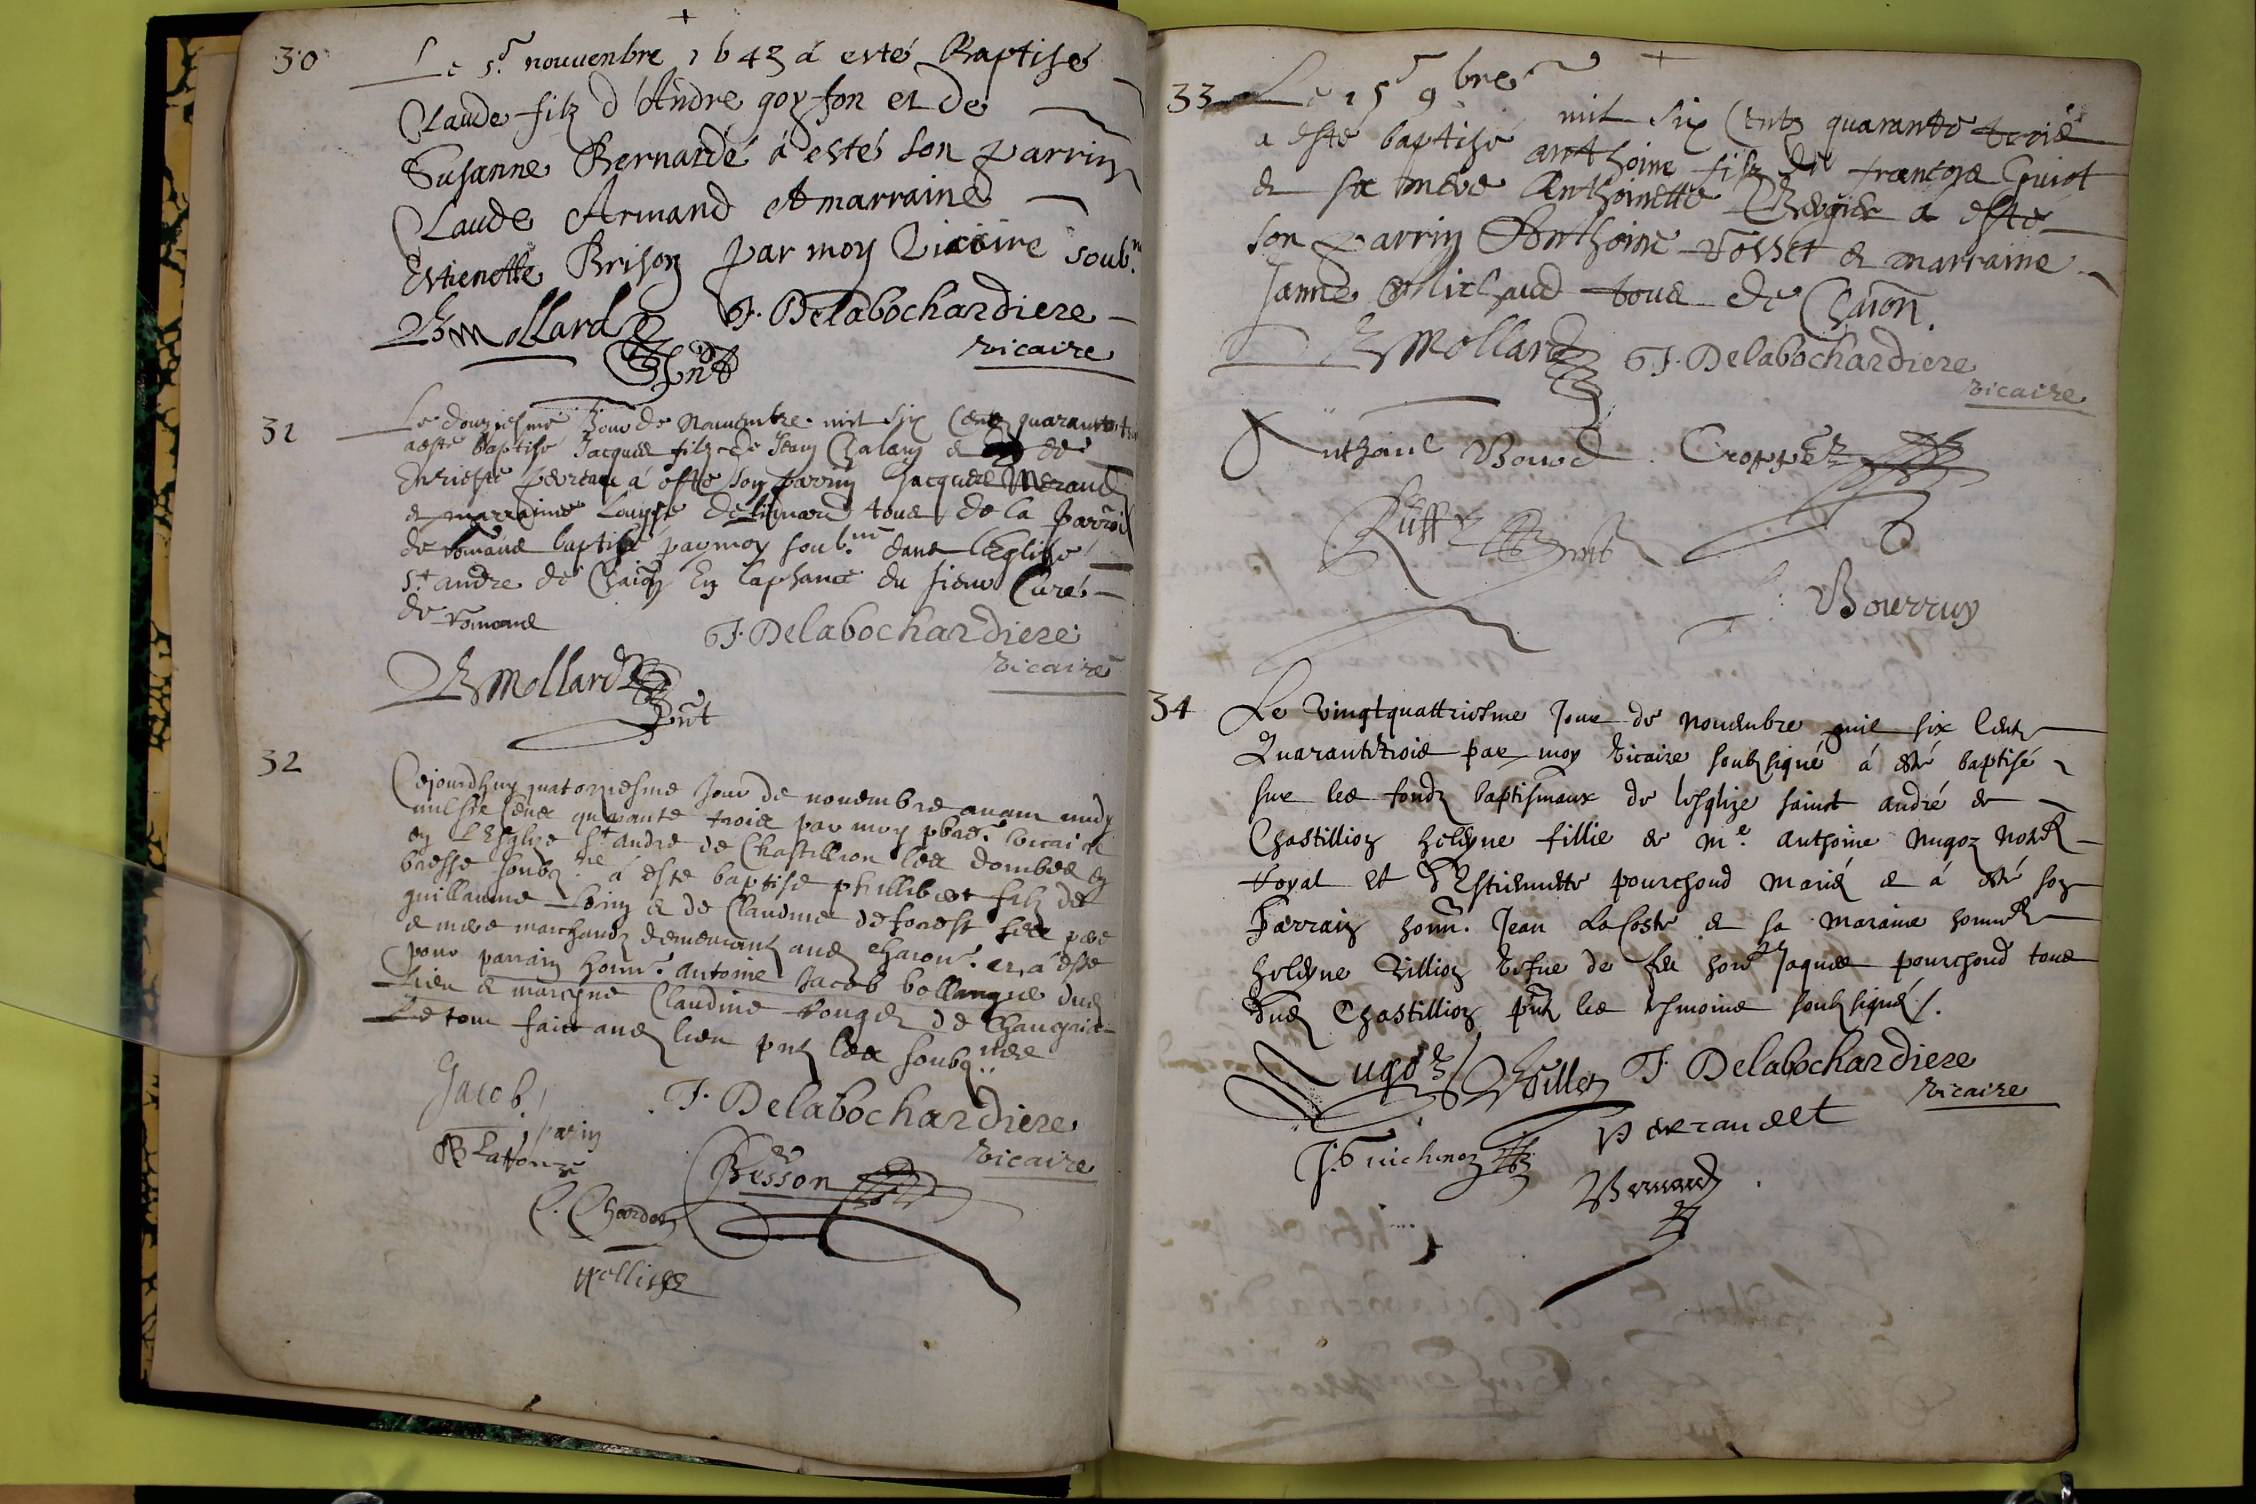 30
Le 5.e nouvenbre 1643 a esté Baptisé
Claude filz d'Andre goyfon et de
Susanne Bernarde á esté son parrin
Claude Armand et marraine
Estienette Brison par moy Vicaire soub.né
Mollard J. Delabochardiere
pnt vicaire
31
Le douziesme Jour de Nouembre mil six Centz quarante
a esté baptisé Jacques filz de Jean Chalan et de
á esté son parrin Jacques Meraud
et marraine Louyse tous de la parroi
de Romans baptisé par moy soub.né dans l'Eglise
S.t andre de Chaon En l'apsance du sieur Curé
de Romans
J. Delabochardiere
Mollard vicaire
pnt
32
Cejourdhuy quatorziesme Jour de nouembre auant midy
mil six cens quarante trois par moy pbre. vicaire
en L'Esglize S.t andre de Chastillion les dombes en
bresse soubz.né á esté baptisé phillibert filz de
guillaume et de Claudine deforest ses pere
et mere marchandz demeurantz aud charon. et á esté
pour parrain honn. Antoine Jacob dud
Lieu et mareyne Claudine Rouge de
Le tout faict aud lieu pntz les soubz.nés
Jacob J. Delabochardiere
parin vicaire
Besson
C. Chardon
33
Le 15 9bre
mil six Centz quarante trois
a esté baptisé anthoine filz de francois Guiot
et sa mere Anthoinette a esté
son parrin Anthoine Rosset et marraine
Janne Michaud tous de Chaon.
Mollard J. Delabochardiere
vicaire
Cropet
pnt
Bourruy
34
Le vingtquattriesme Jour de nouembre mil six Centz
Quarante trois par moy vicaire soubsigné á esté baptisé
sur les fondz baptismaux de l'esglize sainct andré de
Chastillion heleyne fillie de M.e anthoine nugoz not.re
Royal et d'Estiennette pourchoud mariés et á esté son
Parrain honn. Jean Lacoste et sa maraine honn.
heleyne Villion vefue de feu hon. Jaques pourchoud tous
dud Chastillion pntz les tesmoins soubsignés /.
Nugoz J. Delabochardiere
vicaire
J. Guichenon Perraudet
Bernard